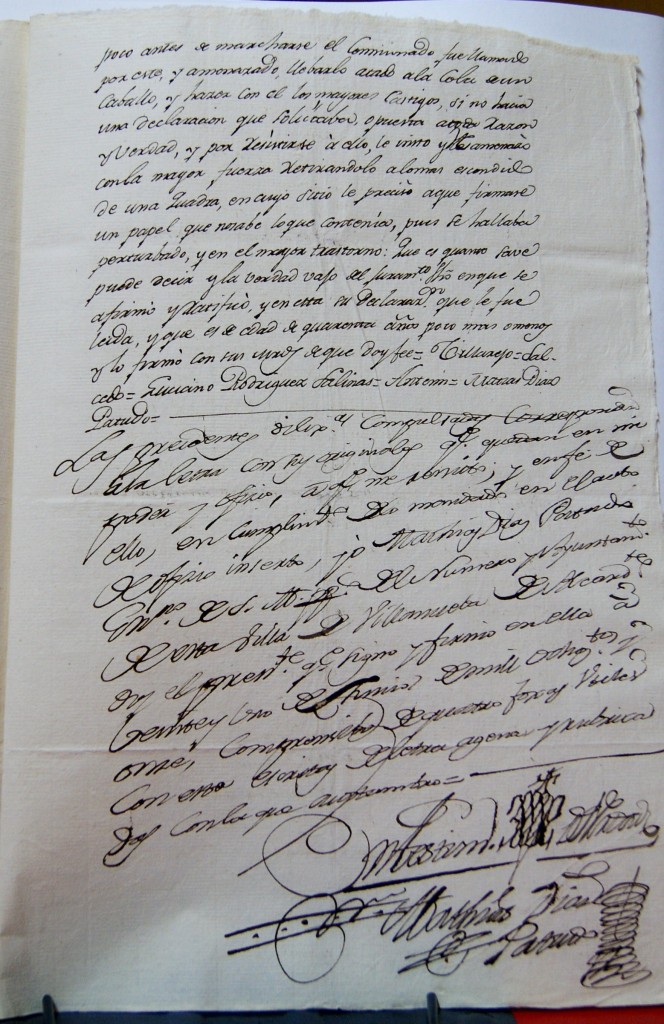 poco antes de marcharse el Comisionado fue llamado
por este, y amenazado, llebarlo atado a la Cola de un
Caballo, y hazer con el los mayores Castigos, si no hacia
una declaracion que solicitaba, opuesta a toda razon
y verdad, y por resistirse à ello, le insto y amenazò
con la mayor fuerza retirandolo a lo mas escondido
de una Quadra, en cuyo sitio le precisò a que firmase
un papel que no sabe lo que contenia, pues se hallaba
perturbado, y en el mayor trastorno: Que es quanto save
puede decir y la verdad vajo del Juram.to hho en que se
afirmò y ratificò, y en esta su declaraz.on que le fue
leida, y que es de edad de quarenta años poco mas o menos
y lo firmò con sus mrds de que doy fee= Sal-
cedo= Luciano Rodriguez Salinas= Antem= Matias Diaz
Patudo=
Las precedentes dilix.as Compulsadas Corresponden
a la letra con sus originales q.e quedan en mi
poder y oficio, a q.e me remito; y en fe de
ello, en Cumplim.to de lo mandado en el auto
de oficio inserto, yo Mathias Diaz Patudo
Ess.no de S. M. pp.co del Numero y Ayuntam.to
de esta Villa de Villanueva de Alcard.te
doy el presen.te q.e signo y firmo en ella à
veinte y uno de Junio de mill ochoz.tos y
onze, Comprensibo de quatro foxas Utiles
Con esta escritas de letra agena y rubrica
das con la que acostumbro=
Entestim.o de Verdad
Mathias Diaz
Patudo